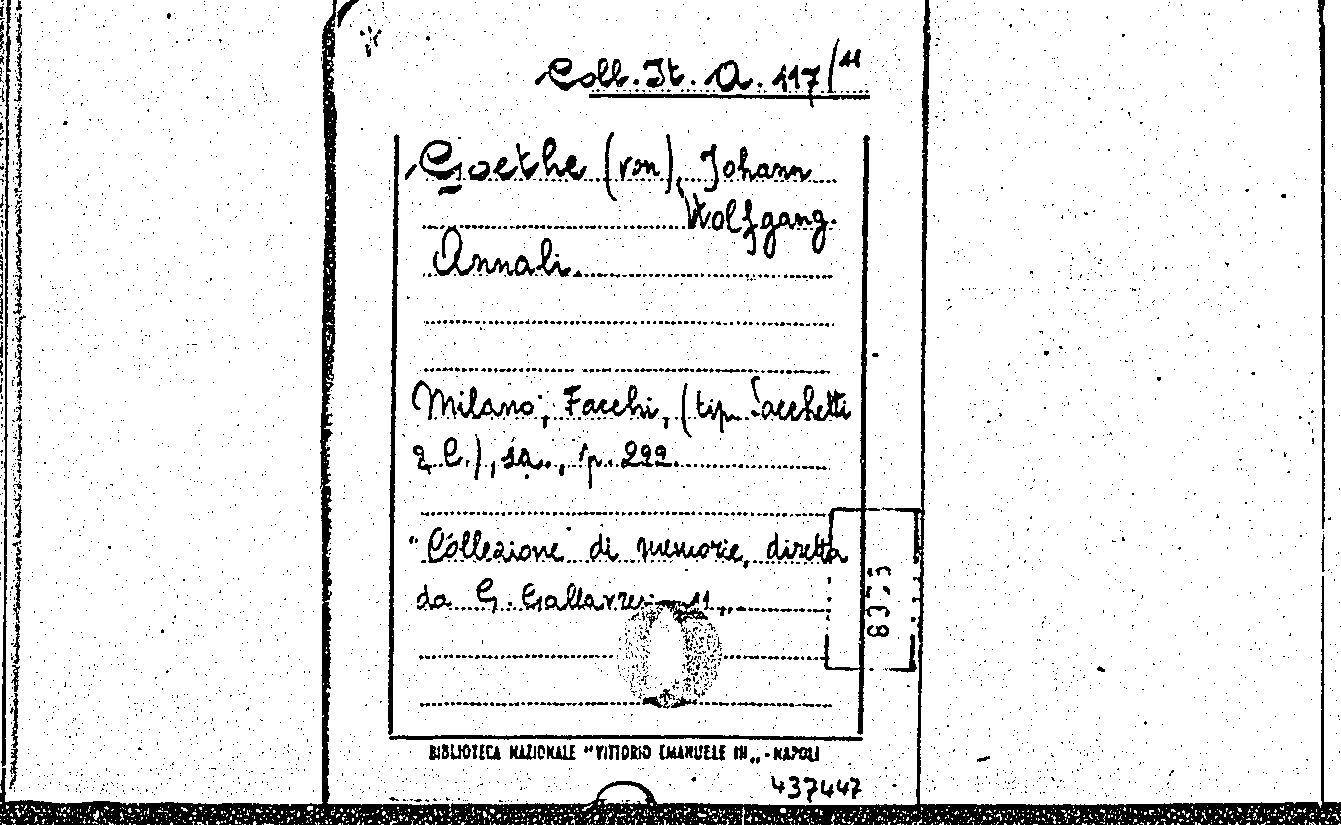 Coll. It. A. 117/11
Goethe (von), Johann
Wolfgang.
Annali.
Milano, Facchi, (tip. Sacchetti
& C.), s.a., p. 299.
"Collezione di memorie, diretta
da G. Gallavresi 11„.
8373
BIBLIOTECA NAZIONALE "VITTORIO EMANUELE III„ - NAPOLI
437447